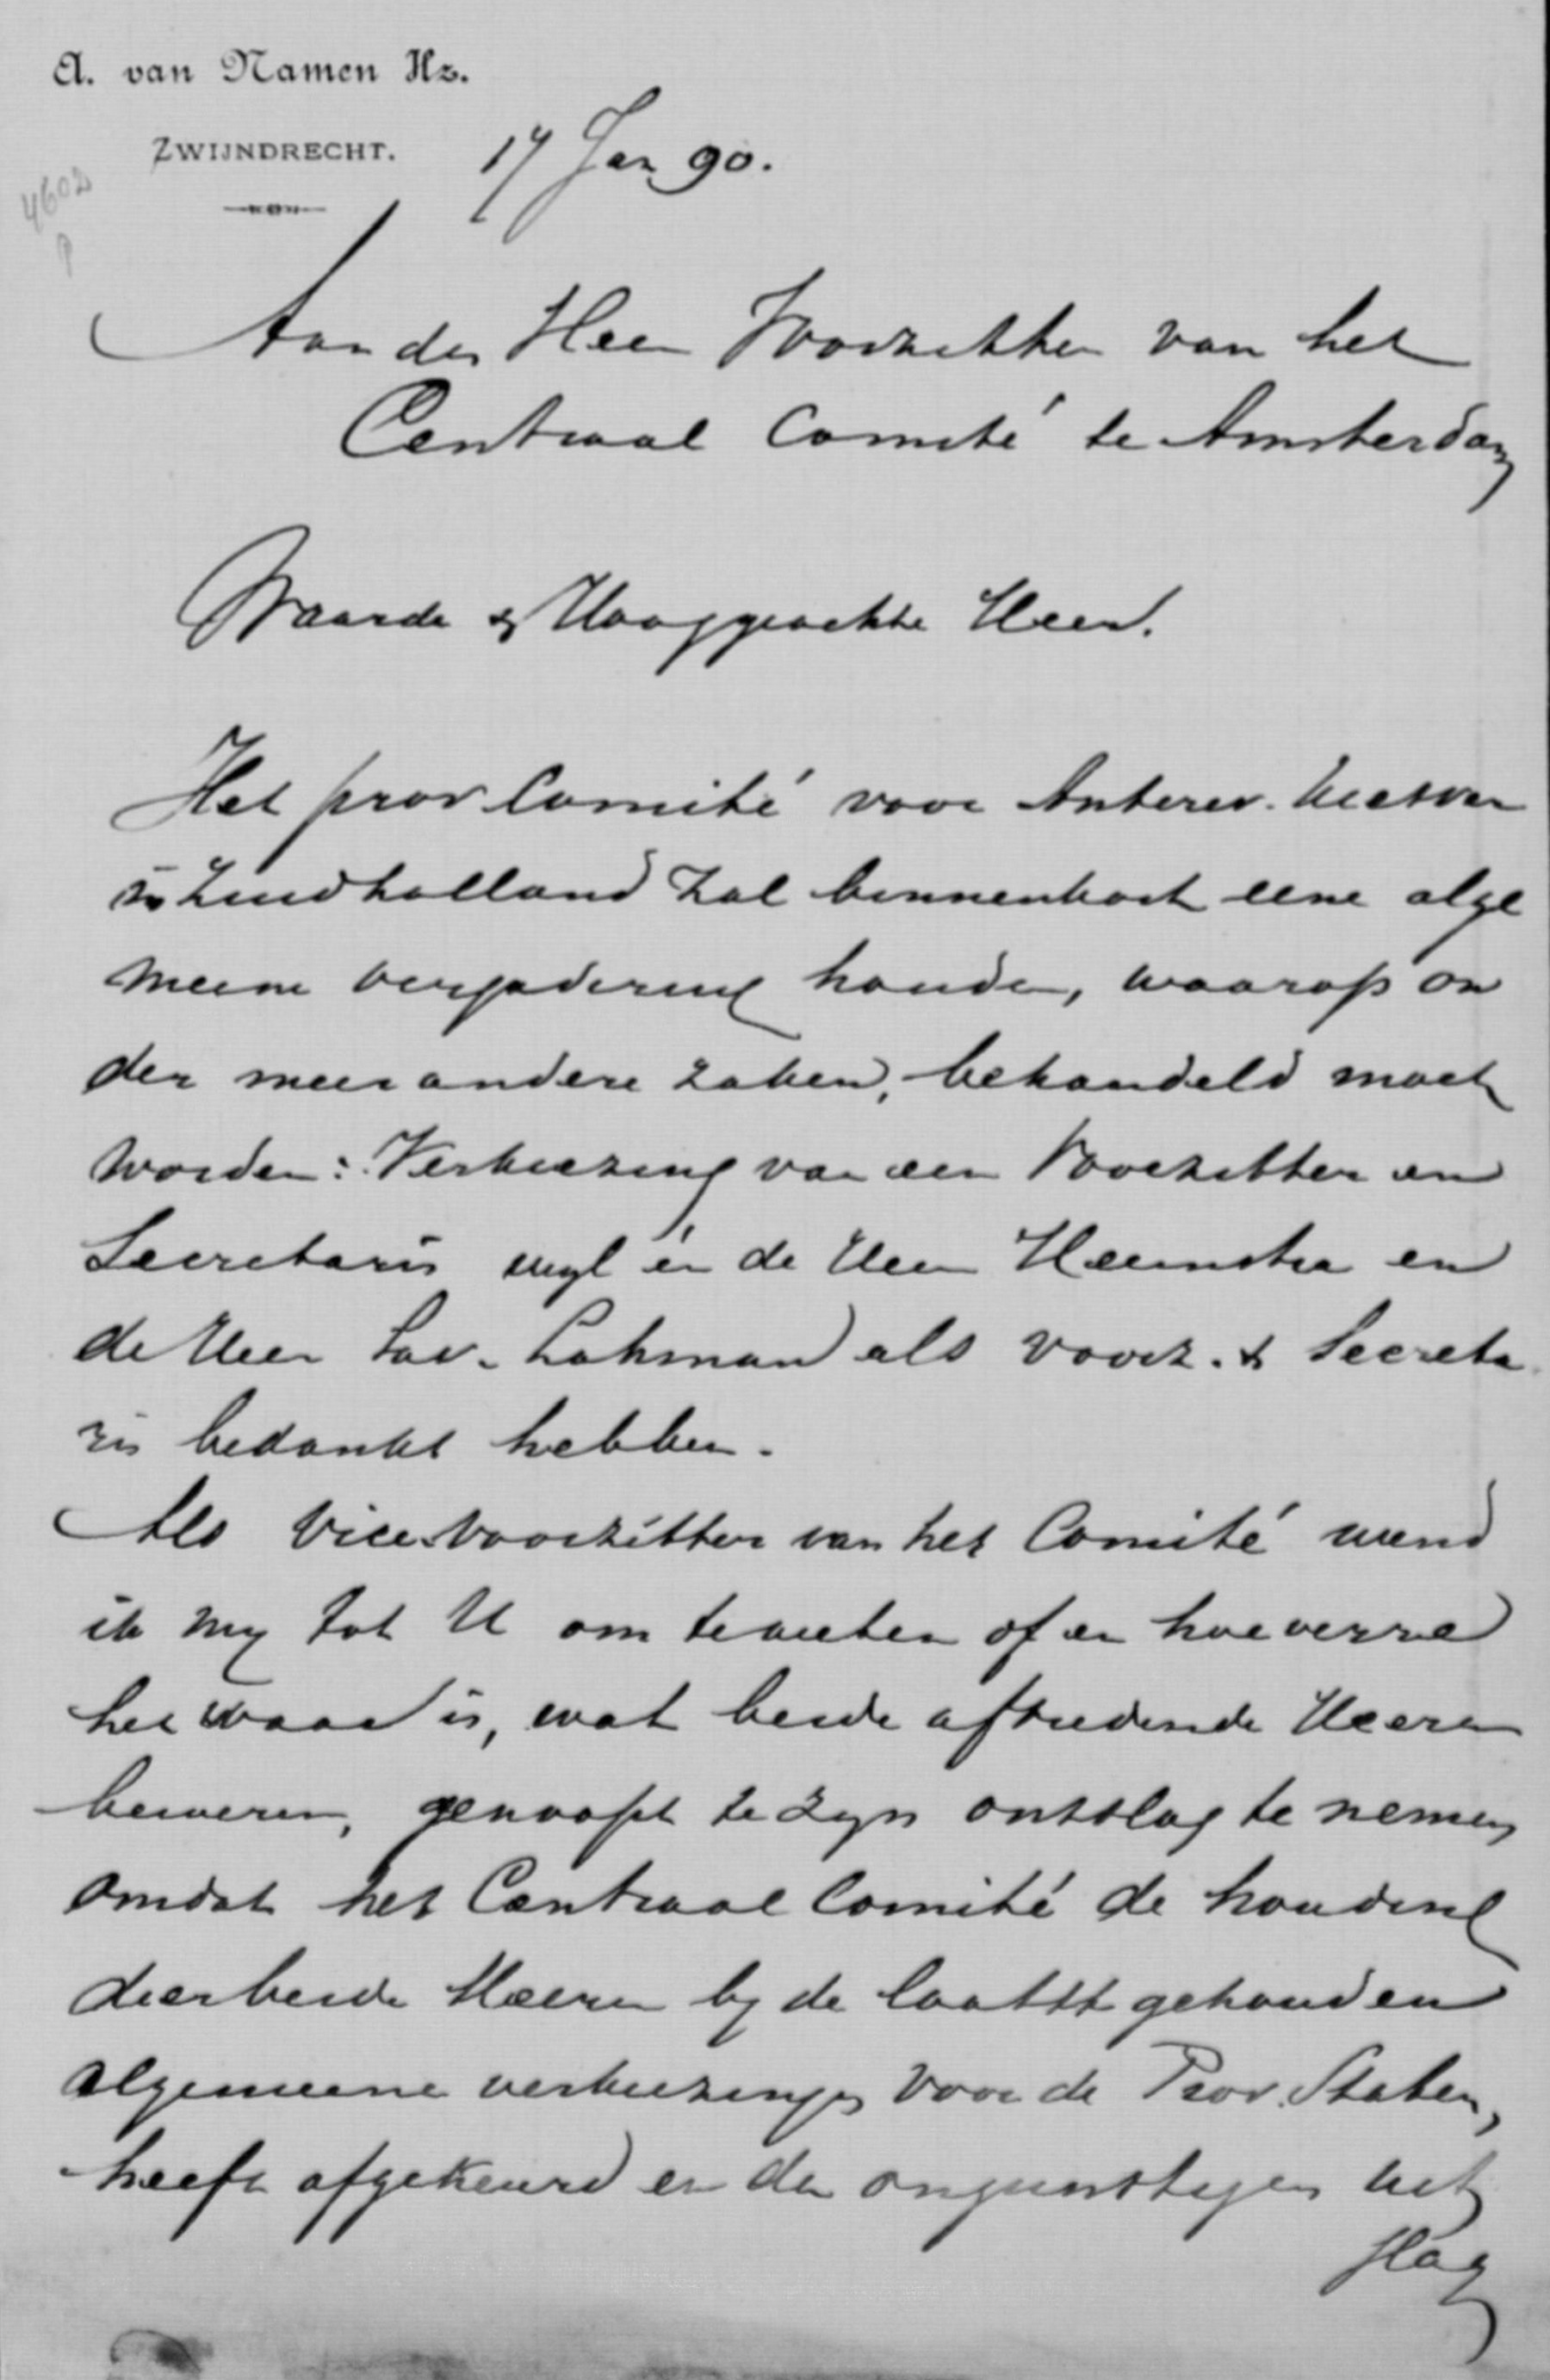 A. van Namen Hz.
ZWIJNDRECHT.
17 Jan 90.
4602
Aan den Heer Voorzitter van het
Centraal Comité te Amsterdam
Waarde & Hooggeachte Heer.
Het prov Comité voor Antirev. kiesver
in Zuidholland zal binnenkort eene alge
meene vergadering houden, waarop on
der meer andere zaken, behandeld moet
worden: Verkiezing van een Voorzitter en
Secretaris wyl én de Heer Heemstra en
de Heer Sav. Lohman als voorz. & Secreta
ris bedankt hebben.
Als Vice Voorzitter van het Comité wend
ik my tot U om te weten of en hoeverre
het waar is, wat beide aftredende Heeren
beweren, genoopt te zyn ontslag te nemen,
omdat het Centraal Comité de houding
dier beide Heeren by de laatst gehouden
algemeene verkiezingen voor de Prov. Staten,
heeft afgekeurd en den ongunstigen uit
slag